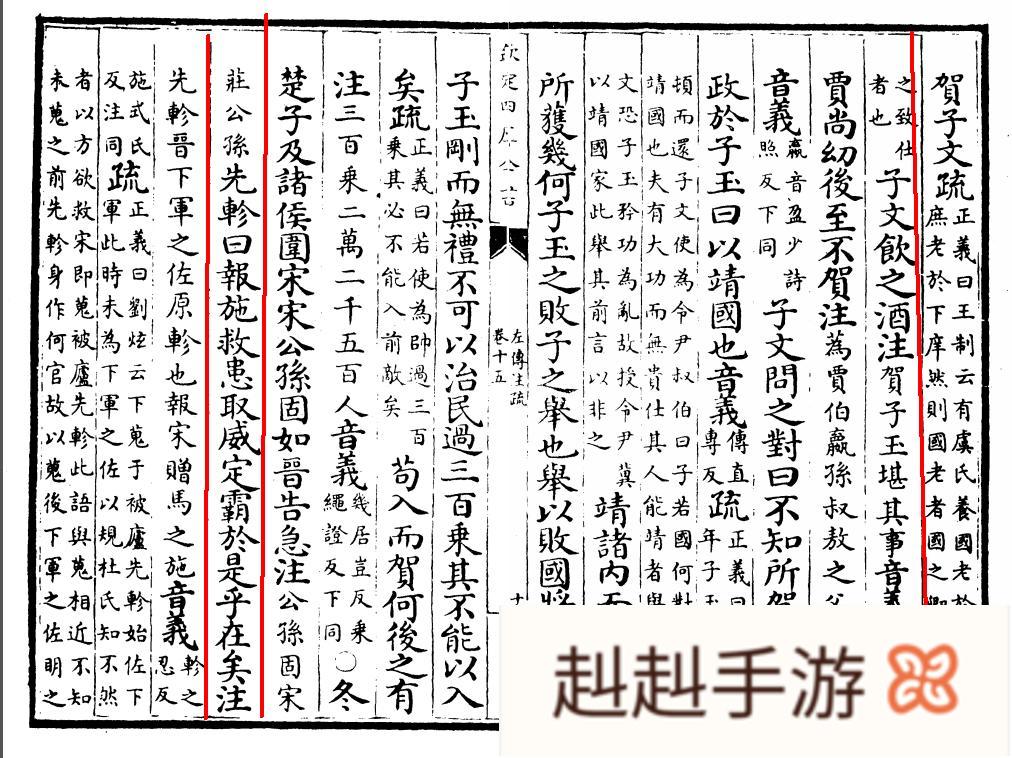 賀子文疏正義曰王制云有虞氏養國老於
庶老於下庠然則國老者國之
之致仕
者也
子文飲之酒注賀子玉堪其事音義
賈尚幼後至不賀注蒍賈伯嬴孫叔敖之
音義嬴音盈少詩
照反下同
子文問之對曰不知所賀
政於子玉曰以靖國也音義傳直
專反
疏正義
年子玉
頓而還子文使為令尹叔伯曰子若國何對
靖國也夫有大功而無貴仕其人能靖者與
文恐子玉矜功為亂故授令尹冀
以靖國家此舉其前言以非之
靖諸内而
所獲幾何子玉之敗子之舉也舉以敗國將
欽定四庫全書
左傳注疏
卷十五
子玉剛而無禮不可以治民過三百乘其不能以入
矣疏正義曰若使為帥過三百
乘其必不能入前敵矣
苟入而賀何後之有
注三百乘二萬二千五百人音義幾居豈反乘
繩證反下同
○冬
楚子及諸侯圍宋宋公孫固如晉告急注公孫固宋
莊公孫先軫曰報施救患取威定霸於是乎在矣注
先軫晉下軍之佐原軫也報宋贈馬之施音義軫之
忍反
施式氏
反注同
疏正義曰劉炫云下蒐于被廬先軫始佐下
軍此時未為下軍之佐以規杜氏知不然
者以方欲救宋即蒐被廬先軫此語與蒐相近不知
未蒐之前先軫身作何官故以蒐後下軍之佐明之
赳赳手游